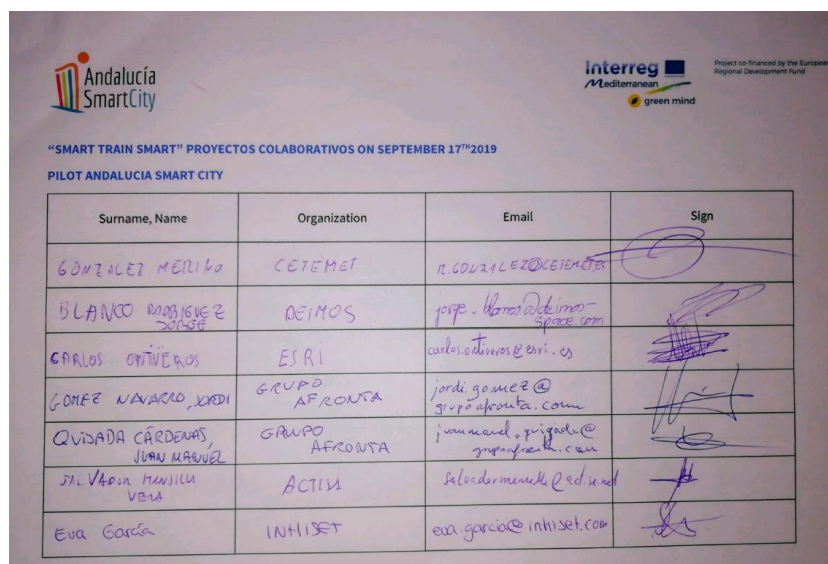 Andalucía
SmartCity
Interreg
Mediterranean
green mind
Project co-financed by the European
Regional Development Fund
“SMART TRAIN SMART” PROYECTOS COLABORATIVOS ON SEPTEMBER 17TH2019
PILOT ANDALUCIA SMART CITY
Surname, Name Organization Email Sign
GONZALEZ MERINO CETEMET
BLANCO RODRIGUEZ
JORGE
DEIMOS
jorge.blanco@deimos-
space.com
CARLOS ONTIVEROS ESRI carlos.ontiveros@esri.es
GOMEZ NAVARRO, JORDI
GRUPO
AFRONTA
jordi.gomez@
grupoafronta.com
QUIJADA CÁRDENAS,
JUAN MANUEL
GRUPO
AFRONTA
SALVADOR
VERA
Eva García INHISET eva.garcia@inhiset.com